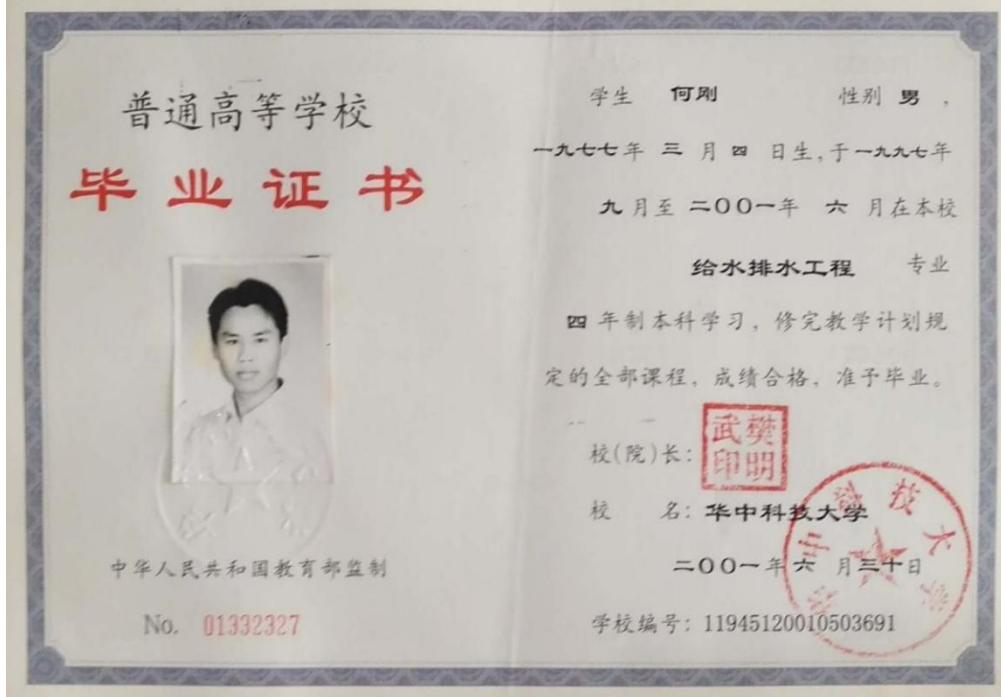 普通高等学校
毕业证书
中华人民共和国教育部监制
No. 01332327
学生 何刚 性别 男,
一九七七年 三 月 四 日生,于一九九七年
九 月至 二〇〇一年 六 月在本校
给水排水工程 专业
四 年制本科学习, 修完教学计划规
定的全部课程, 成绩合格, 准予毕业。
校(院)长: 樊明武印
校 名: 华中科技大学
二〇〇一年六 月三十日
学校编号: 11945120010503691
华中科技大学